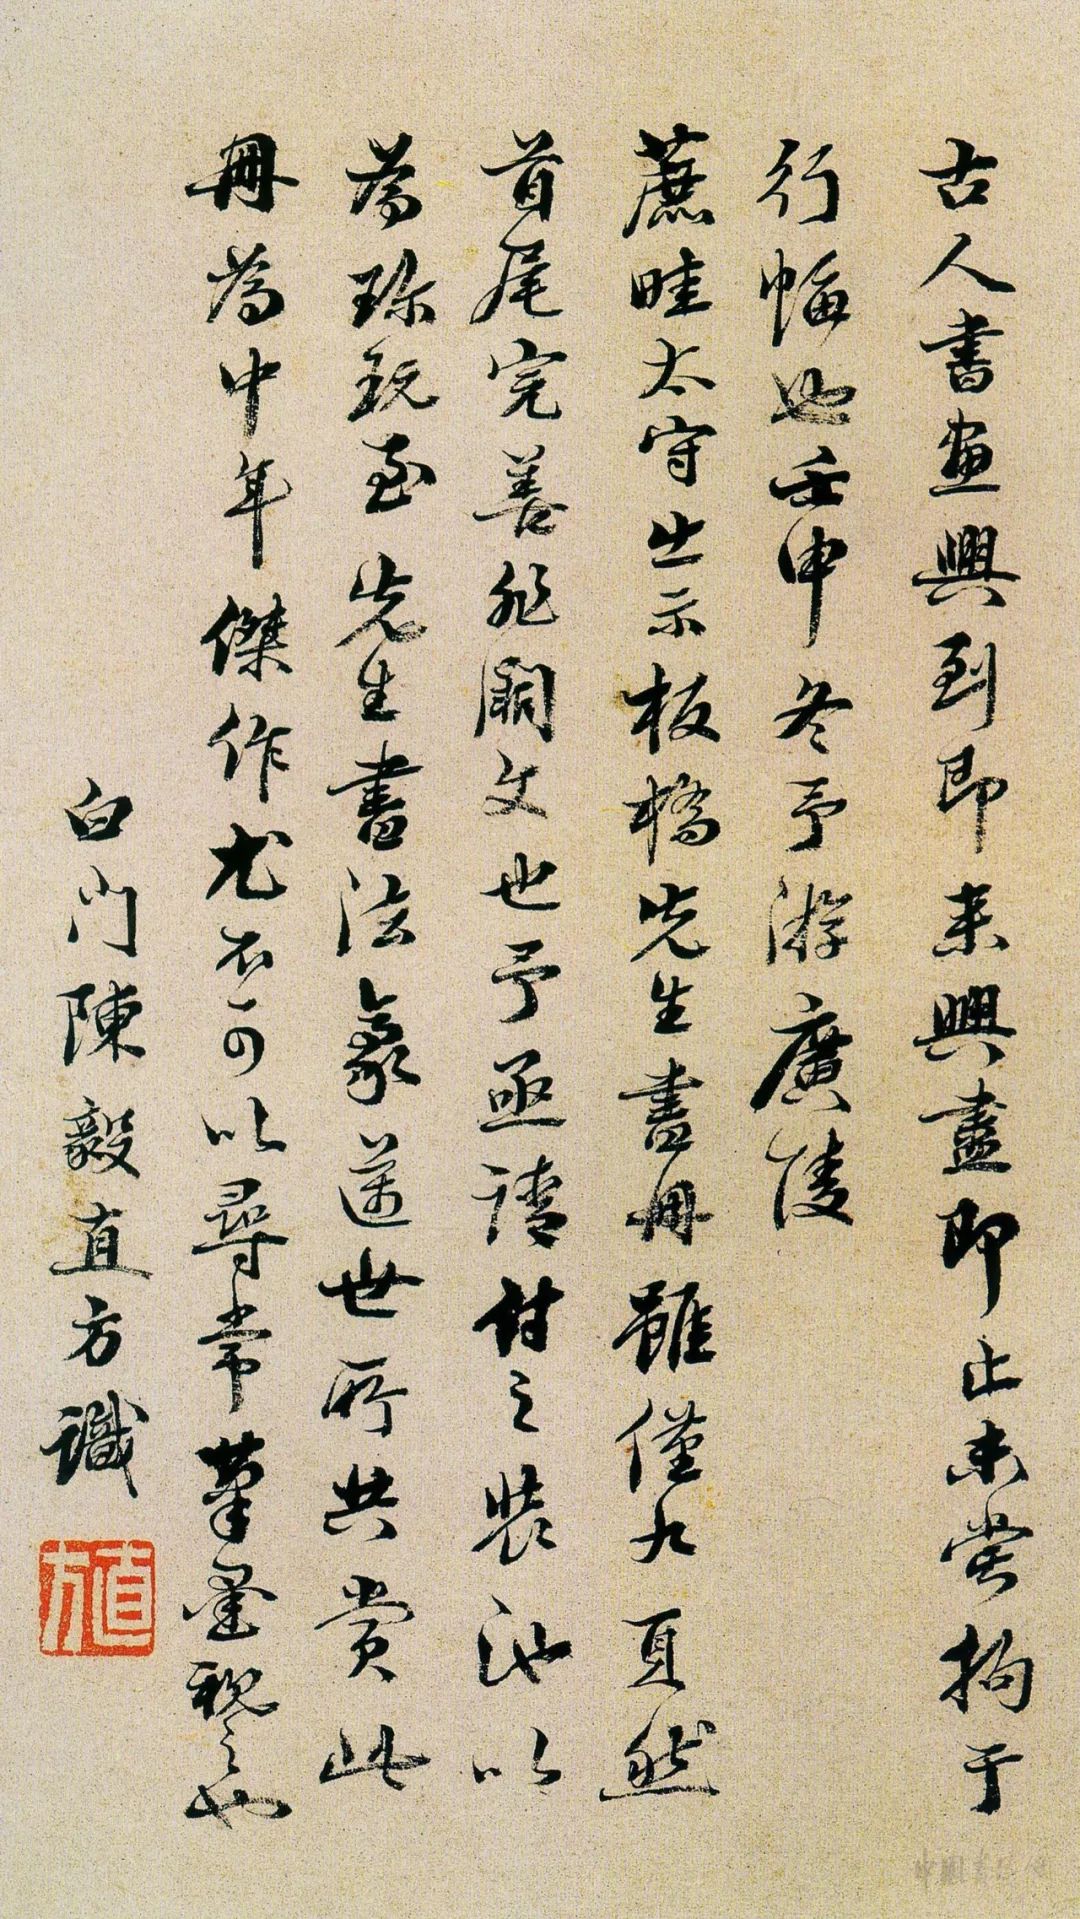 古人書畫興到即来興盡即止未嘗拘于
行幅也壬申冬予游廣陵
蔗畦太守出示板橋先生書冊雖僅九頁然
首尾完善非闕文也予亟請付之裝池以
為珎玩至先生書法豪邁世所共賞此
冊為中年傑作尤不可以尋常筆墨視之也
白門陳毅直方識
直方